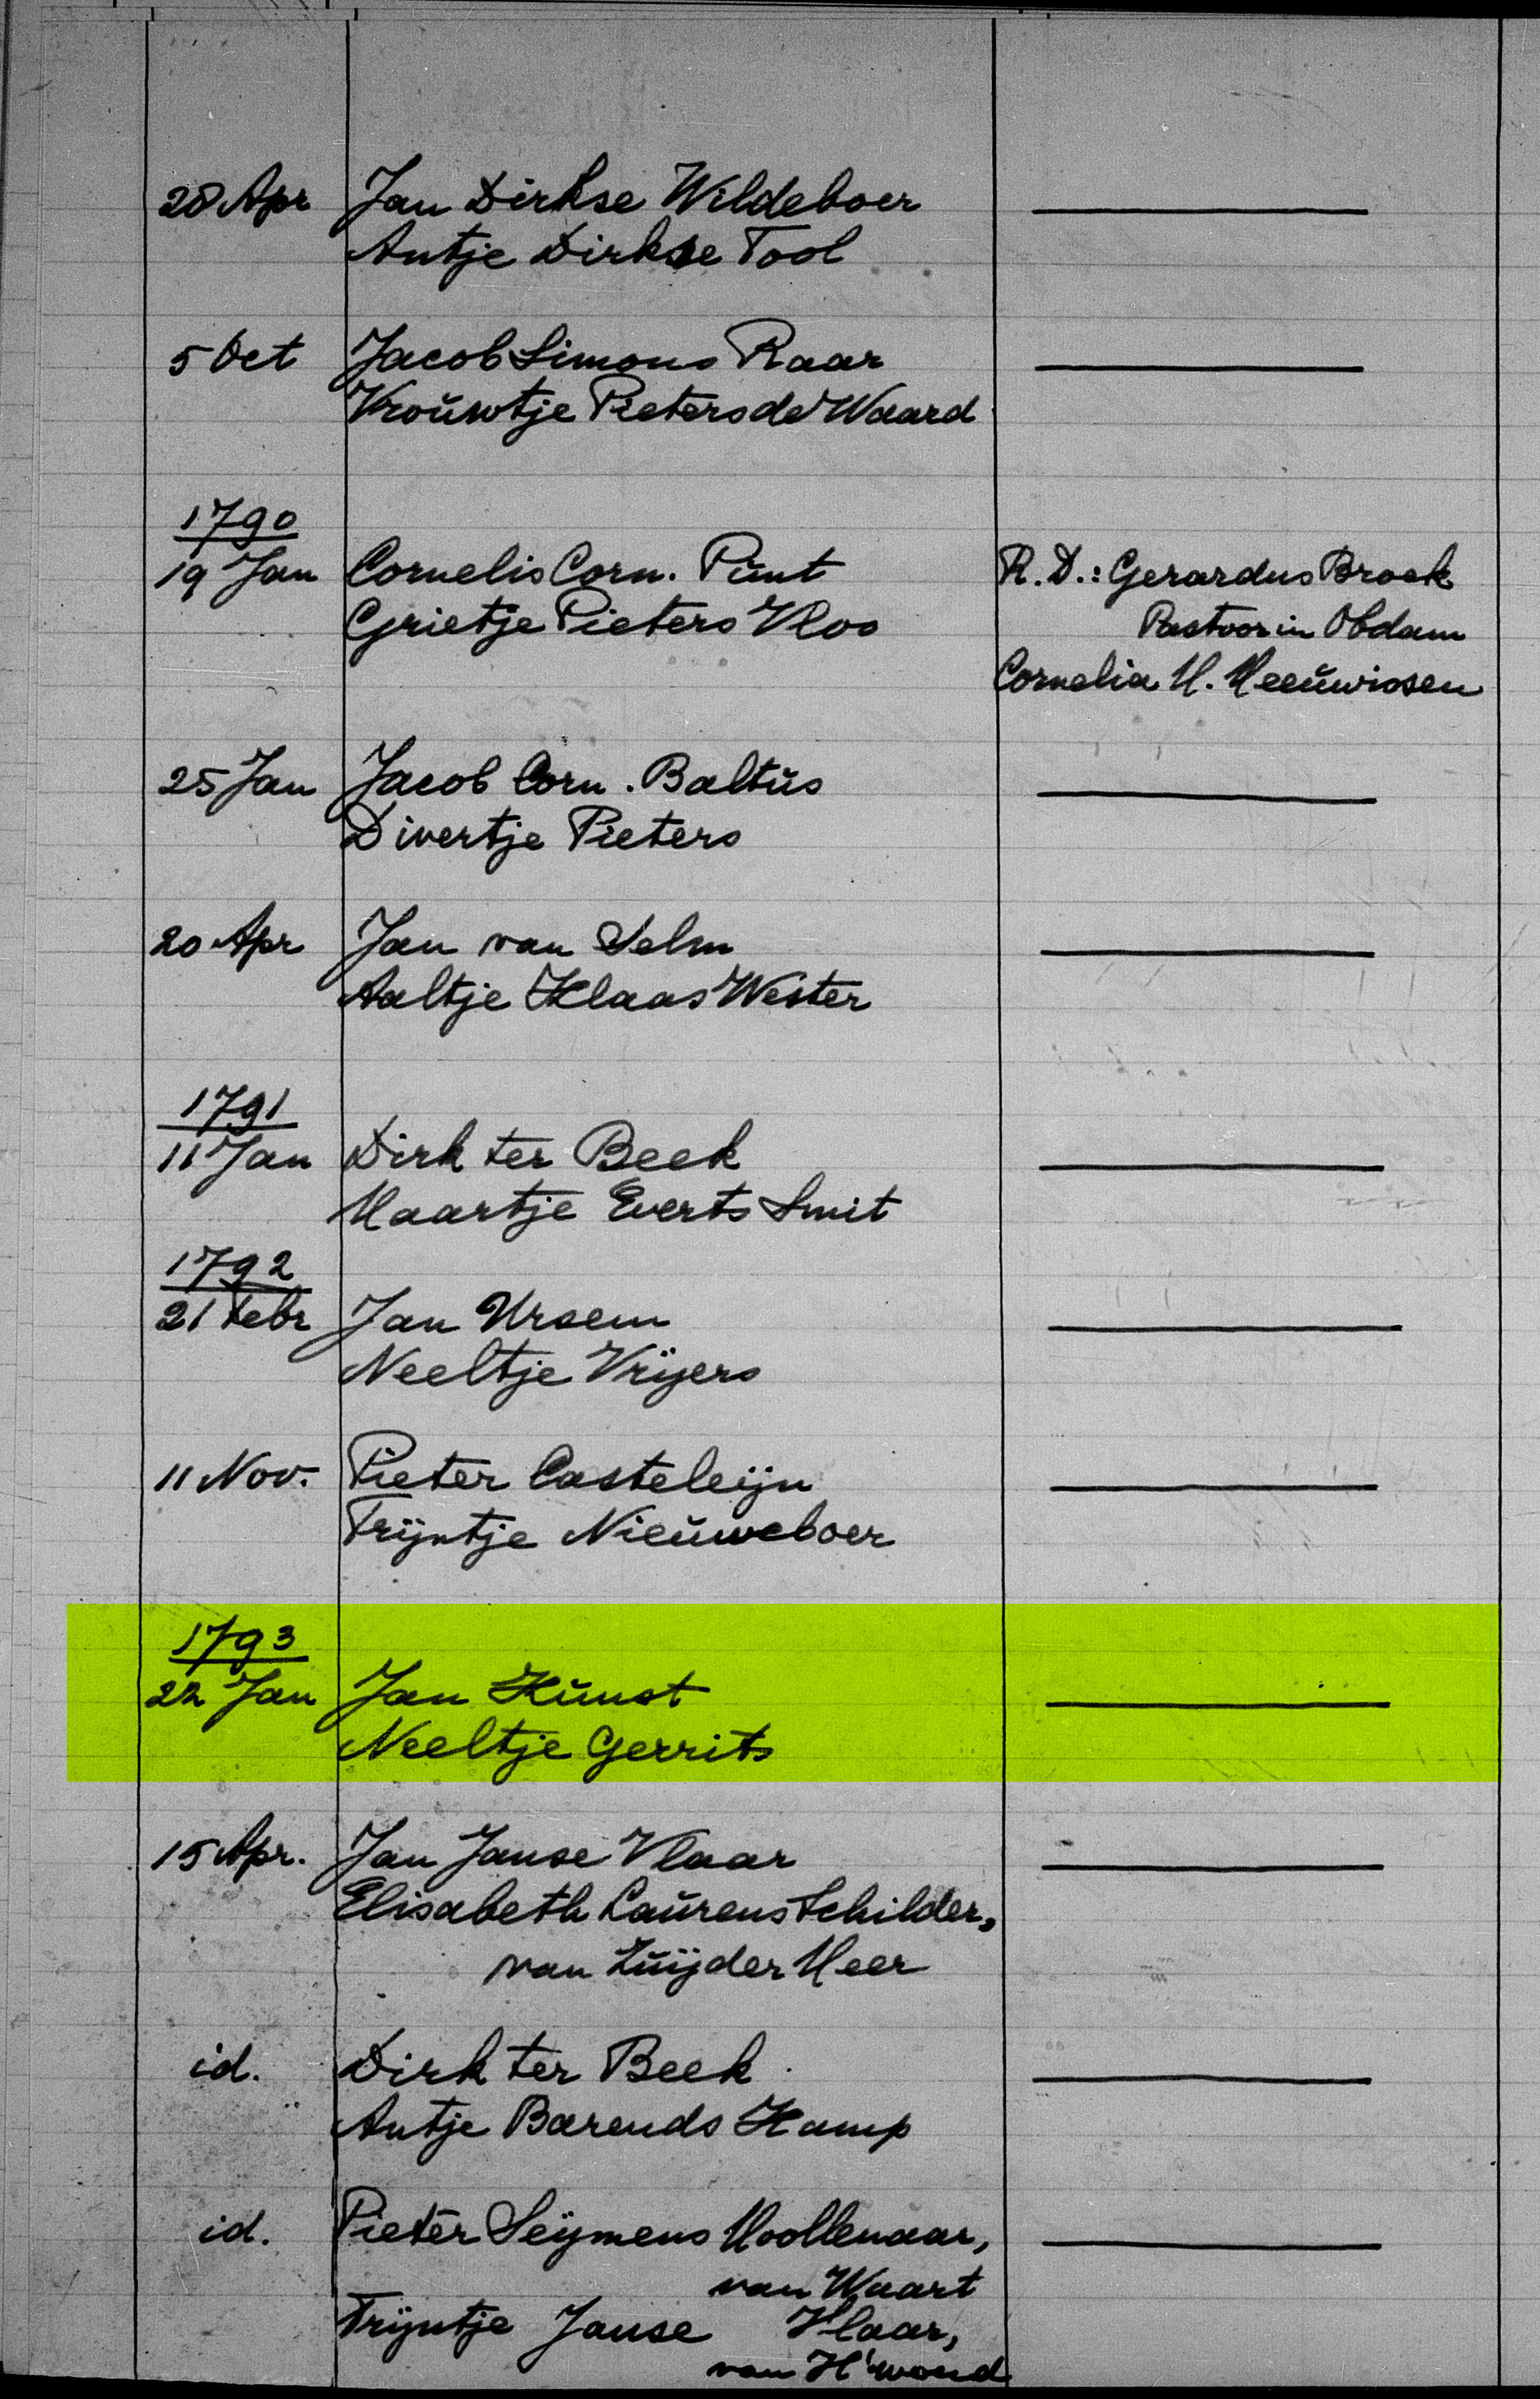 28 Apr Jan Dirkse Wildeboer
Antje Dirkse Tool
5 Oct Jacob Simons Raar
Vroŭwtje Pieters de Waard
1790
19 Jan Cornelis Corn. Pŭnt R.D.: Gerardus Broek
Grietje Pieters Vloo Pastoor in Obdam
Cornelia M. Meeŭwissen
25 Jan Jacob Corn. Baltŭs
Divertje Pieters
20 Apr Jan van Selm
Aaltje Klaas Wester
1791
11 Jan Dirk ter Beek
Maartje Everts Smit
1792
21 Febr Jan Ursem
Neeltje Vrijers
11 Nov. Pieter Casteleijn
Trijntje Nieŭweboer
1793
22 Jan Jan Kŭnst
Neeltje Gerrits
15 Apr. Jan Janse Vlaar
Elisabeth Laŭrens Schilder,
van Zŭijder Meer
id. Dirk ter Beek
Antje Barends Kamp
id. Pieter Seijmens Moollenaar,
van Waart
Trijntje Janse Klaar,
van H'woud